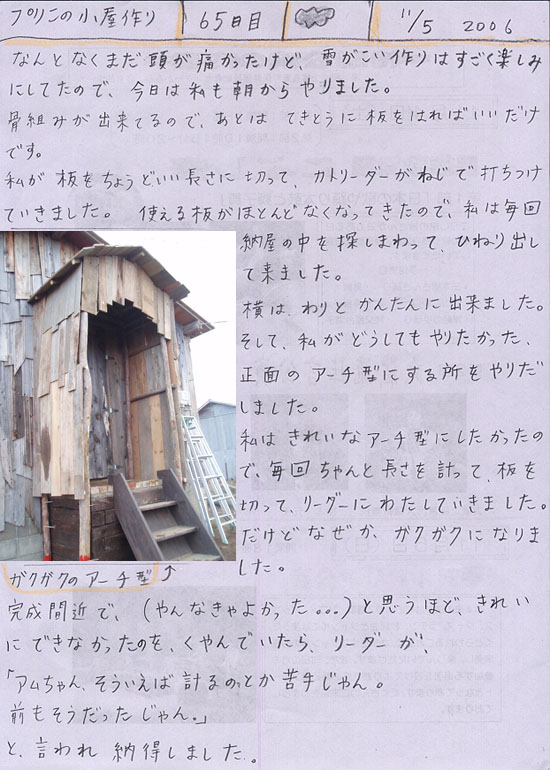 プリこの小屋作り 65日目 11/5 2006
なんとなくまだ頭が痛かったけど、雪がこい作りはすごく楽しみ
にしてたので、今日は私も朝からやりました。
骨組みが出来てるので、あとは てきとうに板をはればいいだけ
です。
私が板をちょうどいい長さに切って、カトリーダーがねじで打ちつけ
ていきました。 使える板がほとんどなくなってきたので、私は毎回
納屋の中を探しまわって、ひねり出し
て来ました。
横は、わりとかんたんに出来ました。
そして、私がどうしてもやりたかった、
正面のアーチ型にする所をやりだ
しました。
私はきれいなアーチ型にしたかったの
で、毎回ちゃんと長さを計って、板を
切って、リーダーにわたしていきました。
だけどなぜか、ガクガクになりま
した。
ガクガクのアーチ型↑
完成間近で、(やんなきゃよかった...)と思うほど、きれい
にできなかったのを、くやんでいたら、リーダーが、
「アムちゃん、そういえば計るのとか苦手じゃん
前もそうだったじゃん。」
と、言われ納得しました。